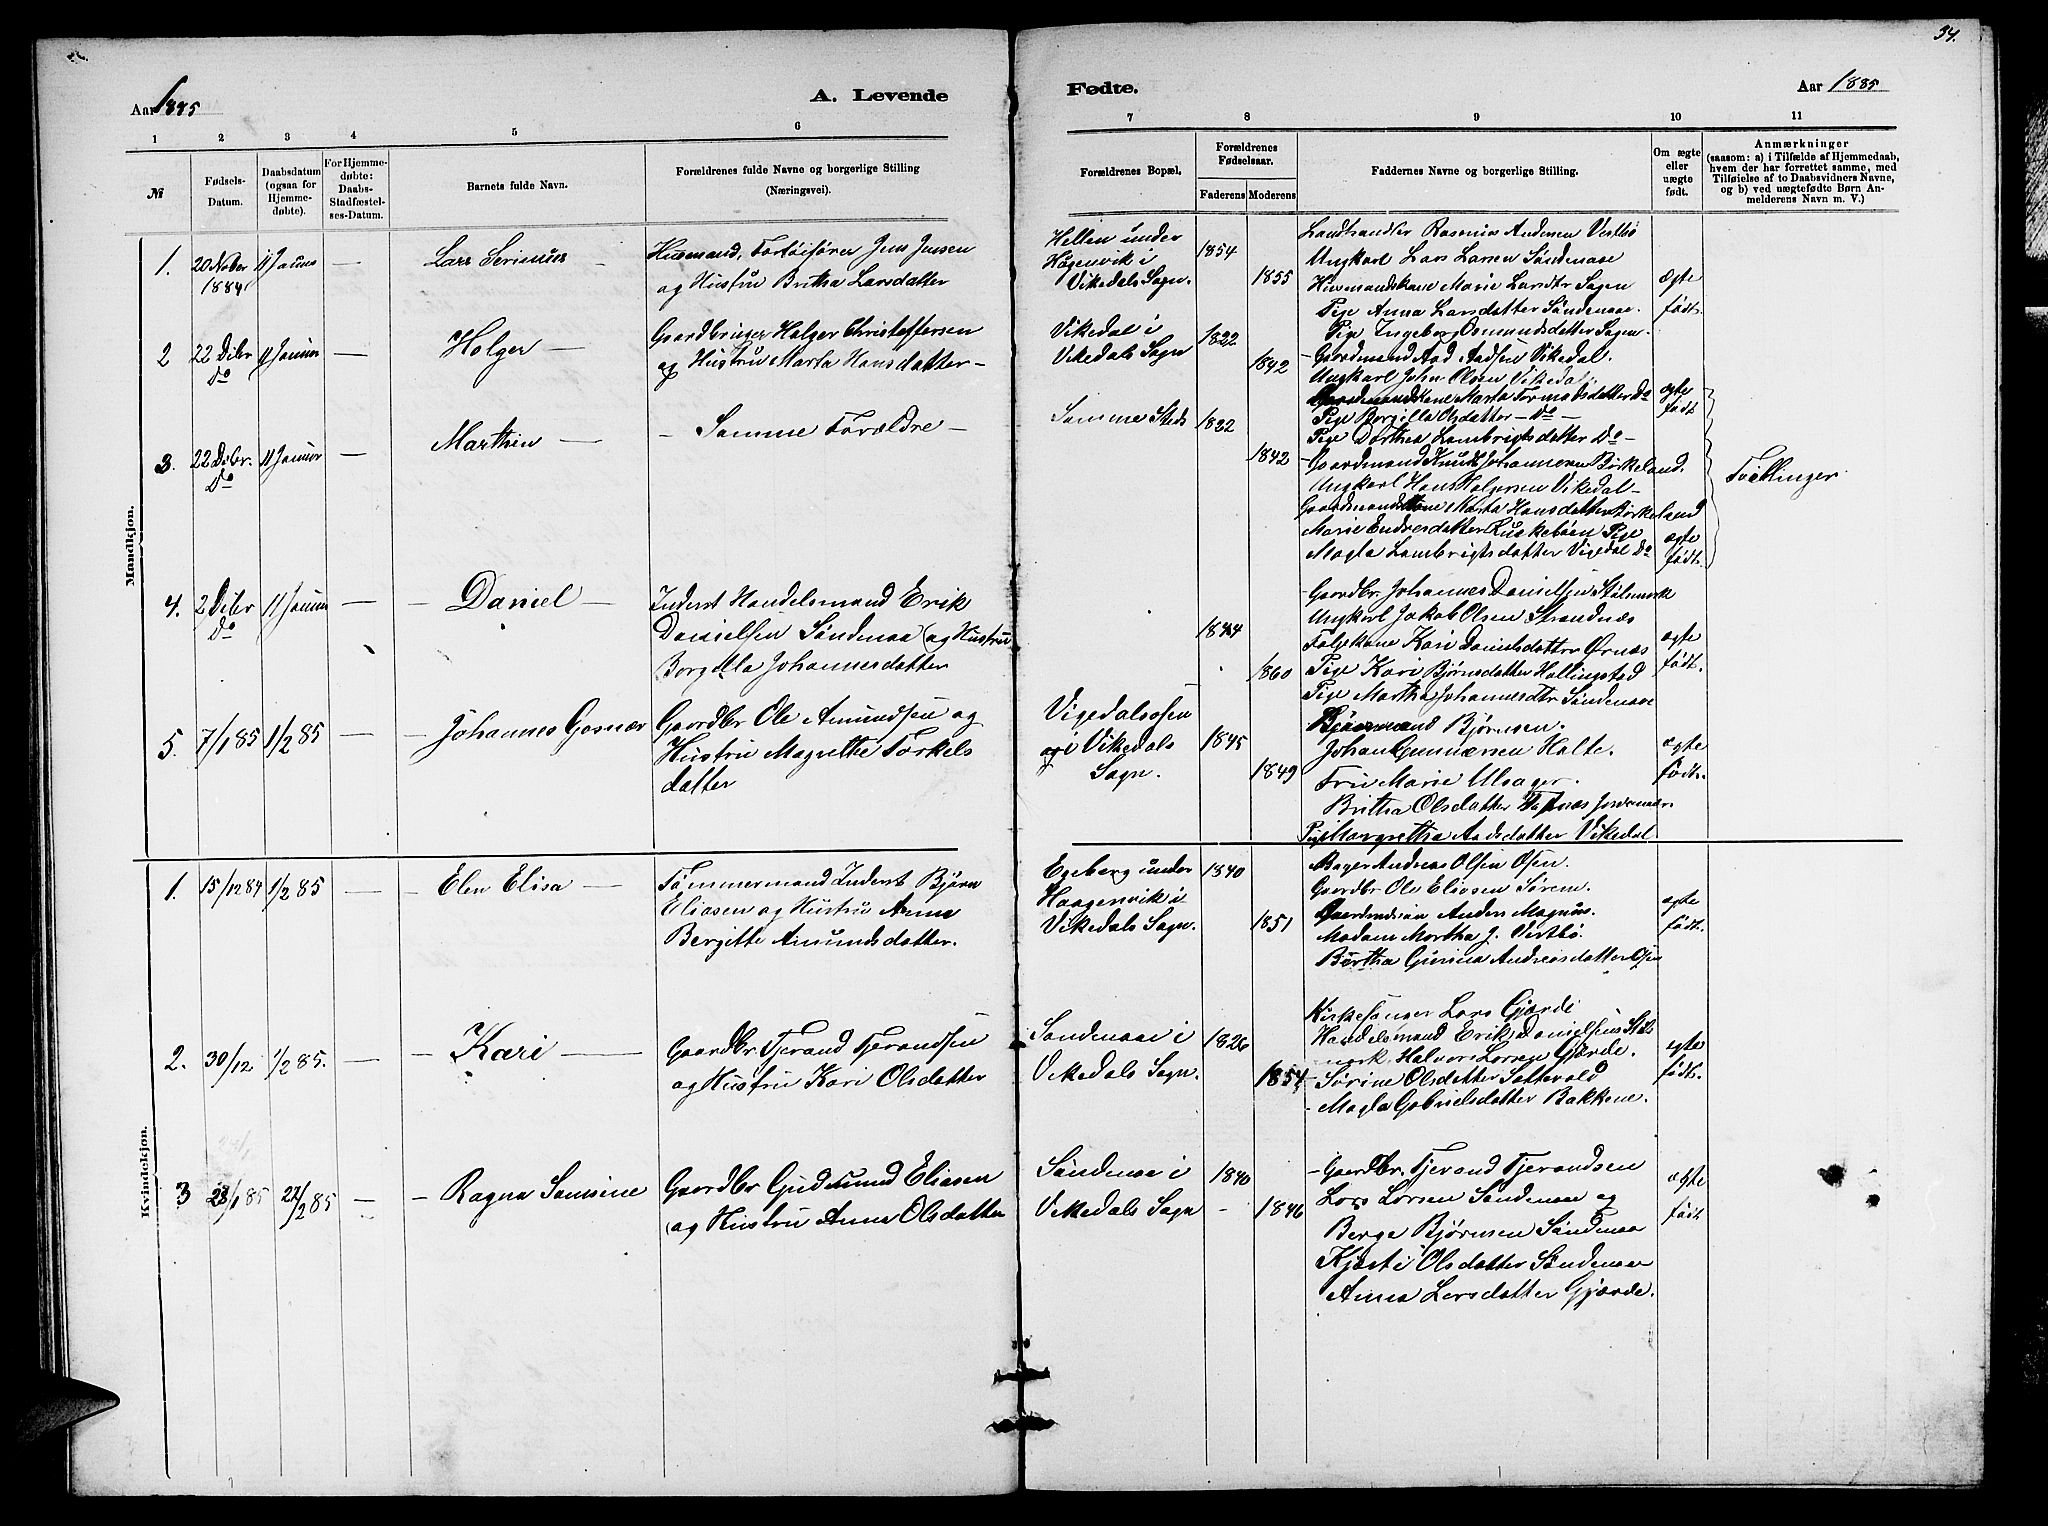 34.
Aar 1885
A. Levende
Fødte.
Aar 1885
1 2 3 4 5 6 7 8 9 10 11
№
Fødsels-
Datum.
Daabsdatum
(ogsaa for
Hjemme-
døbte).
For Hjemme-
døbte:
Daabs-
Stadfæstel-
ses-Datum.
Barnets fulde Navn.
Forældrenes fulde Navne og borgerlige Stilling
(Næringsvei).
Forældrenes Bopæl.
Forældrenes
Fødselsaar.
Faderens Moderens
Faddernes Navne og borgerlige Stilling.
Om ægte
eller
uægte
født.
Anmærkninger
(saasom: a) i Tilfælde af Hjemmedaab,
hvem der har forrettet samme, med
Tilføielse af to Daabsvidners Navne,
og b) ved uægtefødte Børn An-
melderens Navn m. V.)
Mandkjøn.
1. 20 Nober
1884
11 Januar
—
Lars Serinius
Husmand, Jens Jensen
og Hustru Britha Larsdatter
Hellen under
Høgenvik i
Vikedals Sogn.
1854
1855
Landhandler Rasmus Andersen Vestbø
Ungkarl Lars Larsen Søndenaae
Husmandskone Marie Larsdtr Sagen
Pige Anna Larsdatter Søndenaae.
Pige Ingeborg Osmundsdatter Sagen.
ægte
født.
2 22 Debr
Do
11 Januar
—
Holger —
Gaardbruger Holger Christoffersen
og Hustru Marta Hansdatter –
Vikedal i
Vikedals Sogn
1822
1842
– Gaardmand Aad Aadsen Vikedal.
Ungkarl John Olsen Vikedal.
Gaardmandskone Marta Tormodsdatter Do
Pige Borgilla Olsdatter – Do –
Pige Dorthea Lambrigtsdatter Do –
ægte
født
3. 22 Debr.
Do
11 Januar
—
Marthin —
– Samme Forældre –
Samme Steds
1822
1842
– Gaardmand Knut Johannesen Birkeland.
Ungkarl Hans Holgersen Vikedal –
Gaardmandskone Marta Hansdatter Birkeland
Marie Endresdatter Ruskebøen Pige
Magla Lambrigtsdatter Vigedal Do
ægte
født.
Tvillinger
4. 2 Debr
Do
11 Januar
—
– Daniel –
Inderst Handelsmand Erik
Danielsen Søndenaa (og Hustru
Borgilla Johannesdatter
1844
1860
– Gaardbr Johannes Danielsen Stølemork
Ungkarl Jakob Olsen Strandnæs
Kari Danielsdatter Ørnæs
Pige Kari Bjørnsdatter Hallingstad
Pige Martha Johannesdtr Søndenaae
ægte
født.
5. 7/1 85 1/2 85 —
– Johannes Gosnær
Gaardbr Ole Amundsen og
Hustru Magrethe Torkels
datter
Vigedalsosen
i Vikedals
Sogn.
1845
1849
Bjørnsen.
Johan Gunnersen Halte.
Fru Marie Ulsager.
Britha Olsdatter
Pige Margretha Aadsdatter Vikedal
ægte
født.
Kvindekjøn.
1. 15/12 84 1/2 85 —
– Elen Elisa —
Tømmermand Inderst Bjørn
Eliasen og Hustru Anne
Bergitte Amundsdatter.
Egeberg under
Haagenvik i
Vikedals Sogn.
1840
1851
Bager Andreas Olsen Osen.
Gaardbr Ole Eliasen Sørem.
Anders Magnus.
Madam Martha J. Vestbø.
Bertha Gurina Andreasdatter Osen
ægte
født.
2. 30/12 1/2 85. —
– Kari —
Gaardbr Tjerand Tjerandsen
og Hustru Kari Olsdatter
Søndenaae i
Vikedals Sogn.
1826
1854
Kirkesanger Lars Gjærde
Handelsmand Erik Danielsen Støle
mork. Halvor Larsen Gjærde.
– Sørine Olsdatter Sattevold
– Magla Gabrielsdatter Bakkene.
ægte
født.
3 28/1 85 22/2 85 —
– Ragna Samsine
Gaardbr Gudmund Eliasen
(og Hustru Anna Olsdatter
Søndenaa i
Vikedals Sogn
1840
– 1846
– Gaardbr. Tjerand Tjerandsen
Lars Larsen Søndenaa og
Berge Bjørnsen Søndenaa
Kjersti Olsdatter Søndenaa
Anna Larsdatter Gjærde.
ægte
født